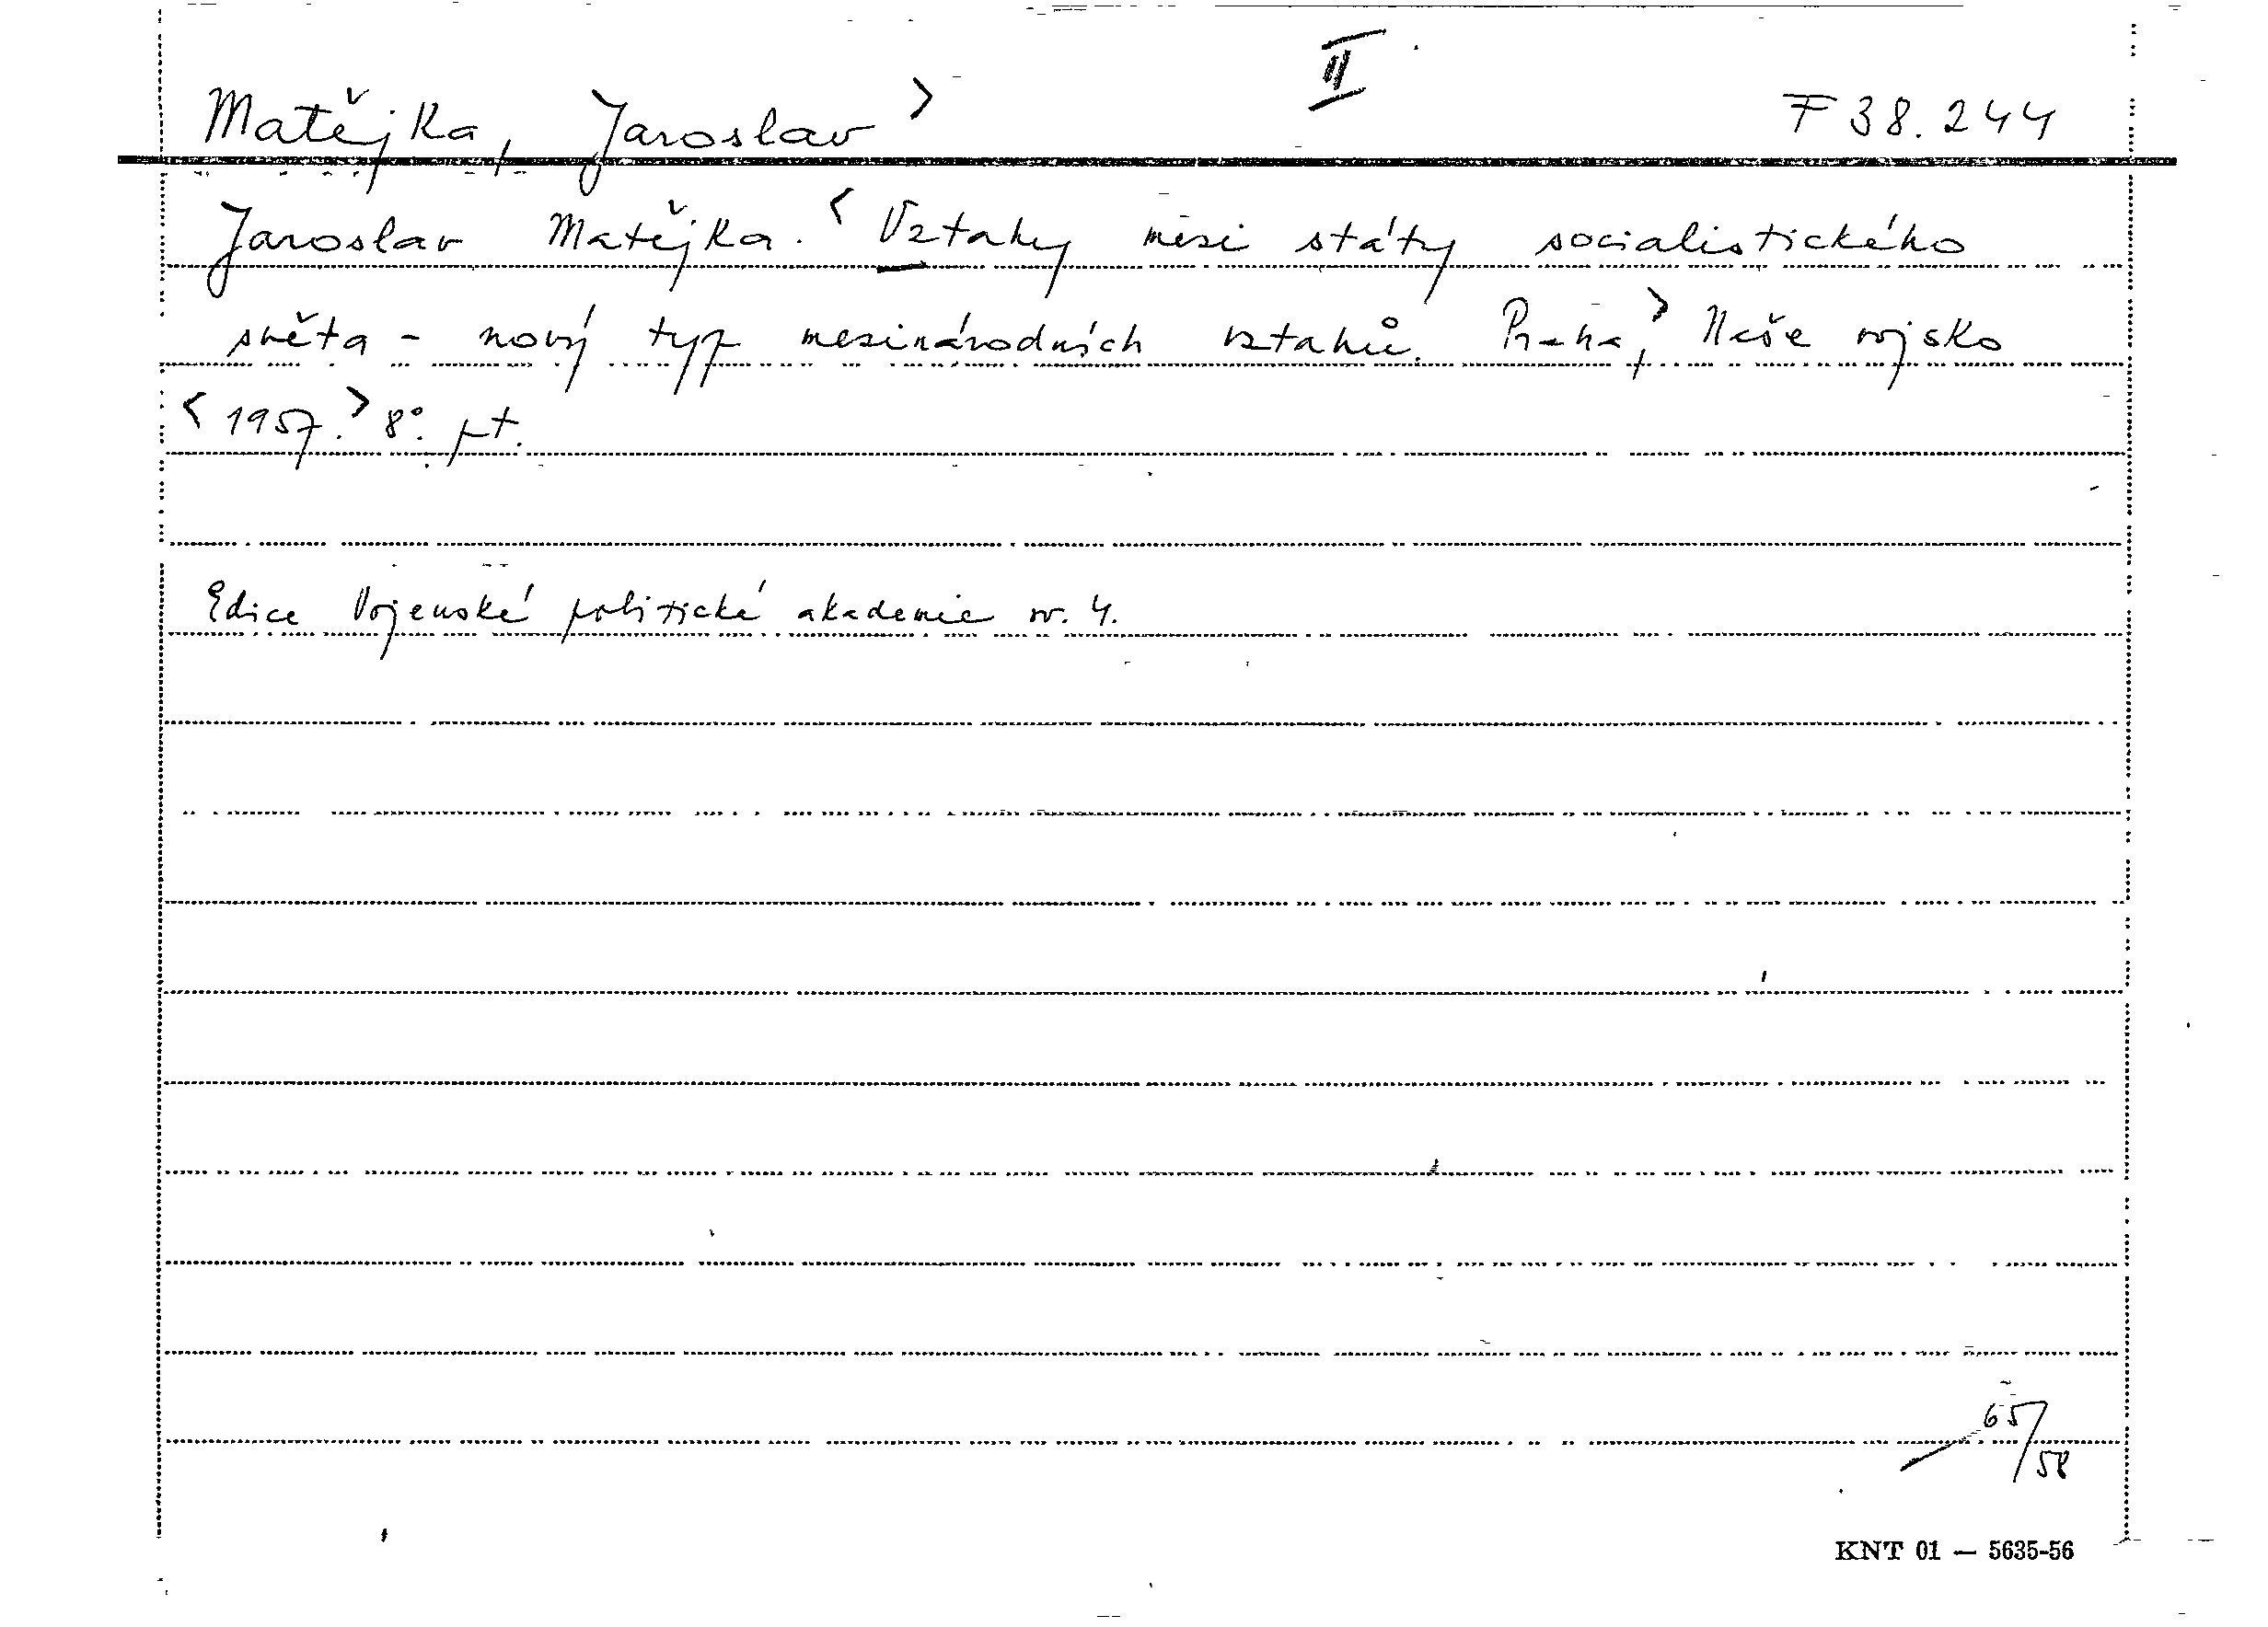 II
Matějka, Jaroslav > F 38.244
Jaroslav Matějka. < Vztahy mezi státy socialistického
světa - nový typ mezinárodních vztahů. Praha, > Naše vojsko
< 1957. > 8°. pt.
Edice Vojenské politické akademie sv. 4.
65/58
KNT 01 — 5635-56